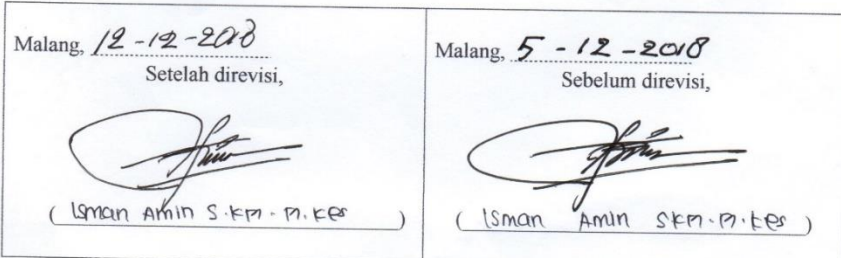 Malang, 12-12-2018
Setelah direvisi,
( Isman Amin S.KM. M.Kes )
Malang, 5-12-2018
Sebelum direvisi,
( Isman Amin SKM. M.Kes )